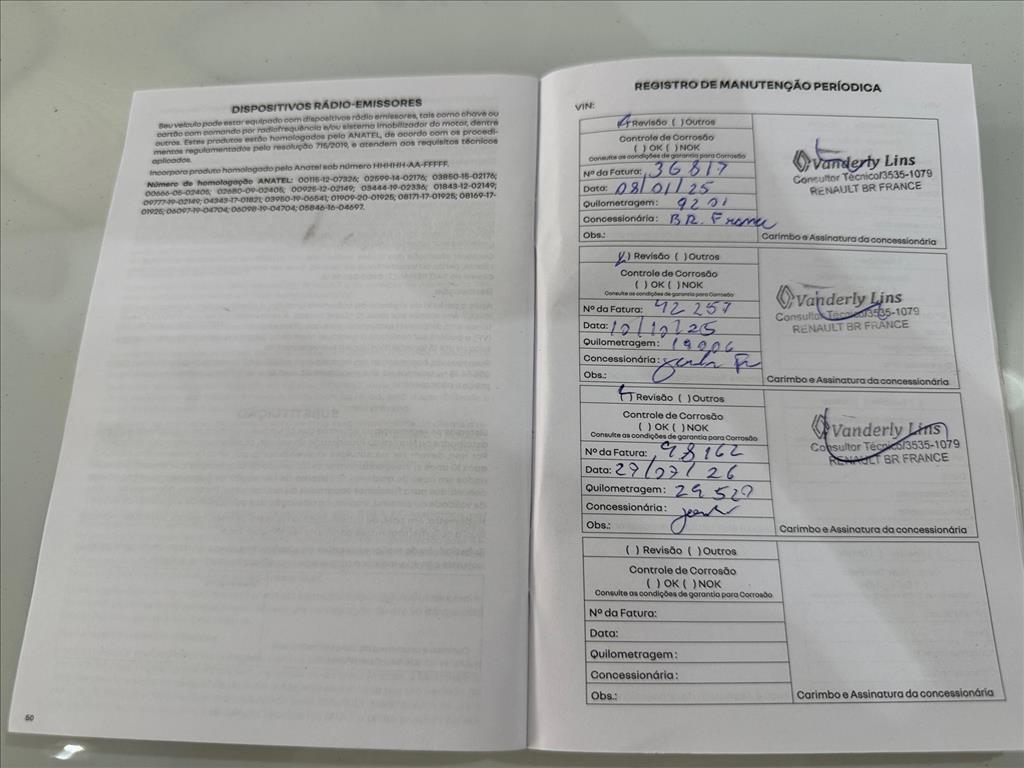 DISPOSITIVOS RÁDIO-EMISSORES
Seu veículo pode estar equipado com dispositivos rádio emissores, tais como chave ou
cartão com comando por radiofrequência e/ou sistema imobilizador do motor, dentre
outros. Estes produtos estão homologados pela ANATEL, de acordo com os procedi-
mentos regulamentados pela resolução 715/2019, e atendem aos requisitos técnicos
aplicados.
Incorpora produto homologado pela Anatel sob número HHHHH-AA-FFFFF.
Número de homologação ANATEL: 00115-12-07326; 02599-14-02176; 03850-15-02176;
00666-05-02405; 02680-09-02405; 00925-12-02149; 03444-19-02336; 01843-12-02149;
09777-19-02149; 04343-17-01821; 03950-19-06541; 01909-20-01925; 08171-17-01925; 08169-17-
01925; 06097-19-04704; 06098-19-04704; 05846-16-04697.
50
REGISTRO DE MANUTENÇÃO PERÍODICA
VIN:
( ) Revisão ( ) Outros
Controle de Corrosão
( ) OK ( ) NOK
Consulte as condições de garantia para Corrosão
Nº da Fatura: 36817
Data: 08/01/25
Quilometragem: 9201
Concessionária: BR. France
Obs.:
Vanderly Lins
Consultor Técnico/3535-1079
RENAULT BR FRANCE
Carimbo e Assinatura da concessionária
( ) Revisão ( ) Outros
Controle de Corrosão
( ) OK ( ) NOK
Consulte as condições de garantia para Corrosão
Nº da Fatura: 42257
Data: 10/10/25
Quilometragem: 19006
Concessionária:
Obs.:
Vanderly Lins
Consultor Técnico/3535-1079
RENAULT BR FRANCE
Carimbo e Assinatura da concessionária
( ) Revisão ( ) Outros
Controle de Corrosão
( ) OK ( ) NOK
Consulte as condições de garantia para Corrosão
Nº da Fatura: 98162
Data: 27/07/26
Quilometragem: 29527
Concessionária:
Obs.:
Vanderly Lins
Consultor Técnico/3535-1079
RENAULT BR FRANCE
Carimbo e Assinatura da concessionária
( ) Revisão ( ) Outros
Controle de Corrosão
( ) OK ( ) NOK
Consulte as condições de garantia para Corrosão
Nº da Fatura:
Data:
Quilometragem:
Concessionária:
Obs.:
Carimbo e Assinatura da concessionária